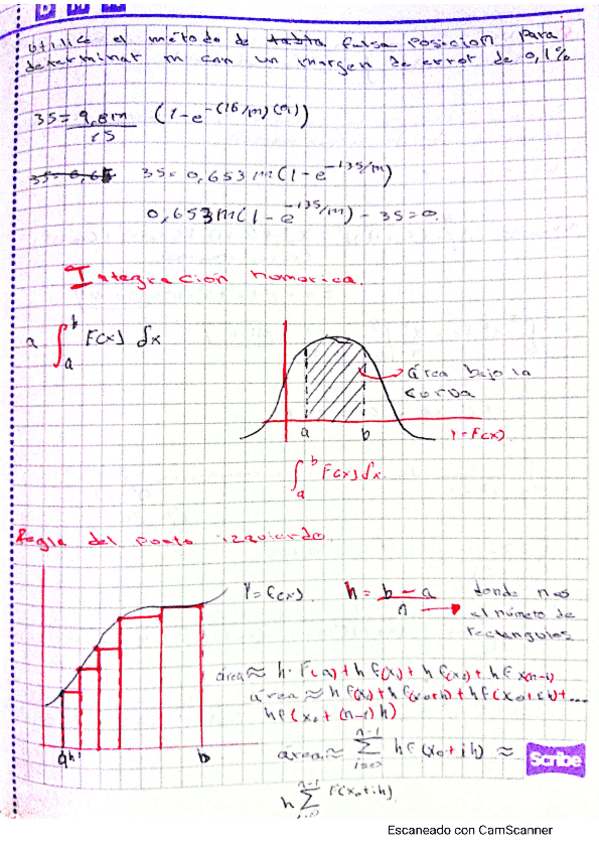 utilice el método de falsa posicion para
determinar m con un margen de error de 0,1%
35 = 9,8m / 15 (1-e^-(15/m)(9))
35 = 0,653 m(1-e^-135/m)
0,653m(1-e^-135/m) - 35 = 0
Integración numerica.
∫_a^b F(x) dx
área bajo la
curva
a b Y=F(x)
∫_a^b F(x)dx
Regla del punto izquierdo.
Y=f(x) h = b-a / n donde n es
el número de
rectangulos
área ≈ h·F(a)+hf(x)+hf(x2)+hf x(n-1)
área ≈ hf(x)+hf(x0+h)+hf(x0+2h)+...
hf(x0+(n-1)h)
a h b
area ≈ Σ_{i=0}^{n-1} hf(x0+ih) ≈
Scribe
h Σ_{i=0}^{n-1} F(x0+ih)
Escaneado con CamScanner